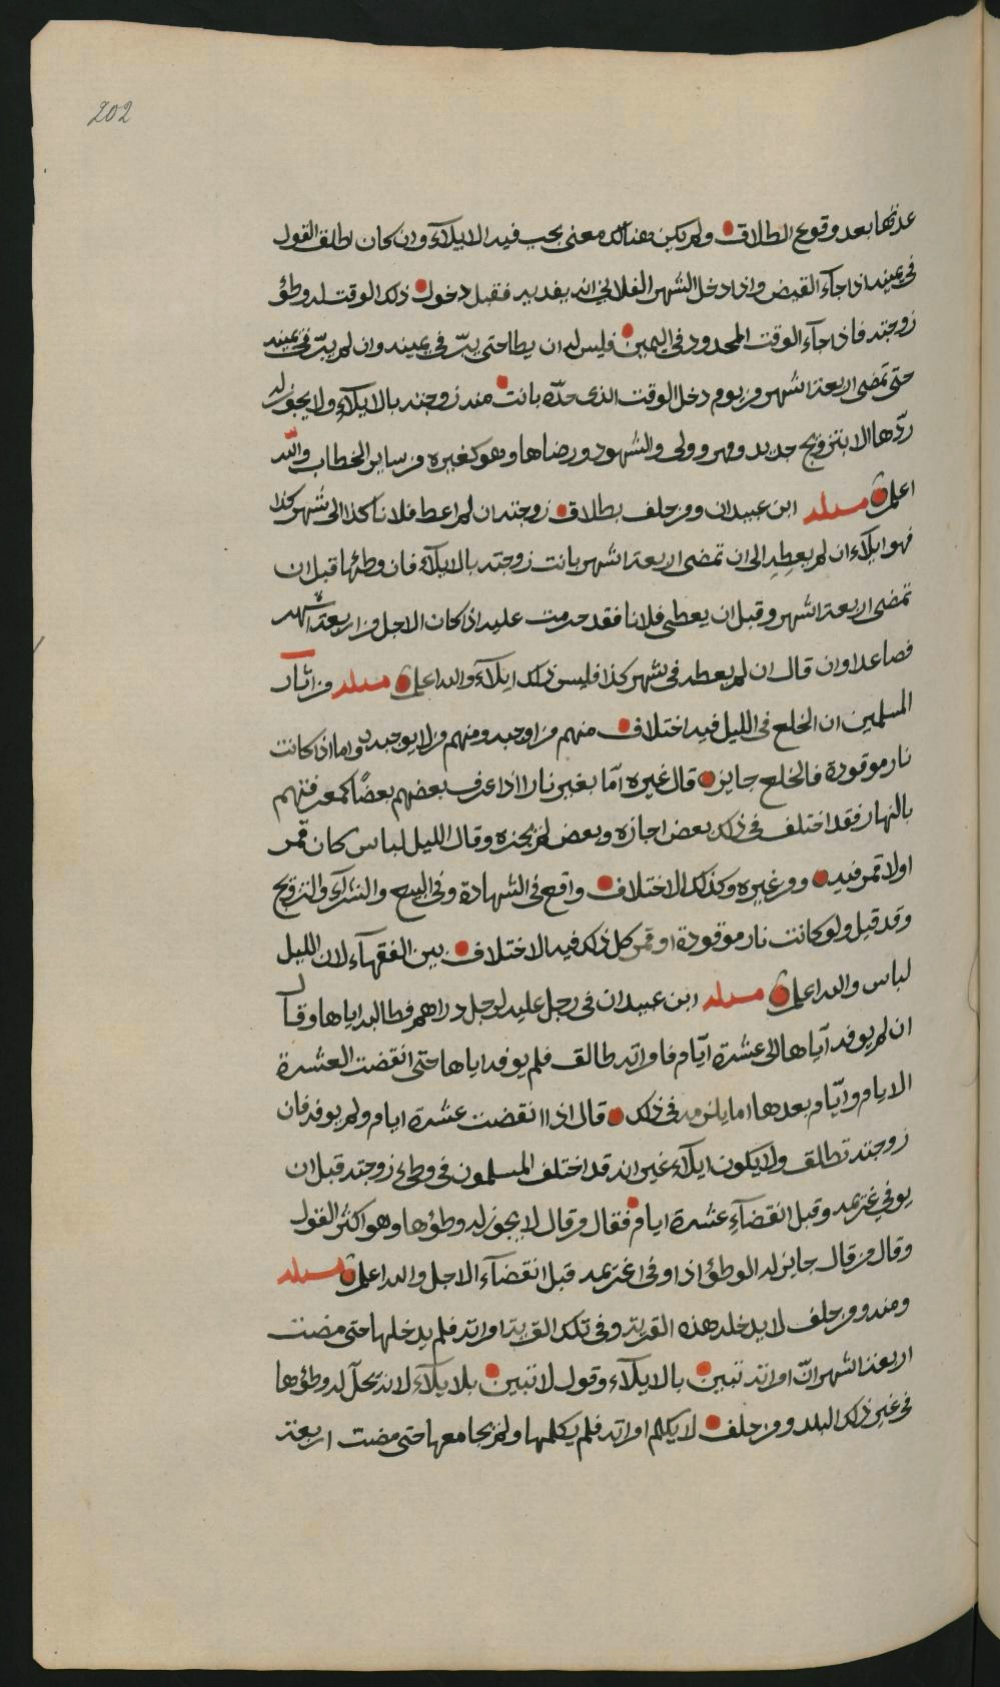 202
عدتها بعد وقوع الطلاق ولم يكن هنالك معنى يجب فيه الايلاء وان كان اطلق القول
في يمينه اذا جاء القيض واذا دخل الشهر الفلاني انه يفديه فقبل دخول ذلك الوقت له وطؤ
زوجته فاذا جاء الوقت المحدود في اليمين فليس له ان يطا حتى يبرّ في يمينه وان لم يبرّ في يمينه
حتى تمضى اربعة اشهر من يوم دخل الوقت الذى حدّه بانت منه زوجته بالايلاء ولا يجوز له
ردّها الا بتزويج جديد ومهر وولى والشهود ورضاها وهو كغيره من ساير الخطاب والله
اعلم مسئلة ابن عبيدان ومن حلف بطلاق زوجته ان لم اعط فلانا كذا الى شهر كذا
فهو ايلاء ان لم يعطِه الى ان تمضى اربعة اشهر بانت زوجته بالايلاء فان وطئها قبل ان
تمضى اربعة اشهر وقبل ان يعطى فلانا فقد حرمت عليه اذا كان الاجل من اربعة اشهر
فصاعدا وان قال ان لم يعطه في شهر كذا فليس ذلك ايلاء والله اعلم مسئلة من اثار
المسلمين ان الخلع في الليل فيه اختلاف منهم من اوجبه ومنهم من لا يوجبه واما اذا كانت
نار موقودة فالخلع جايز قال غيره اما بغير نار اذا عرف بعضهم بعضًا كمعرفتهم
بالنهار فقد اختلف في ذلك بعض اجازه وبعض لم يجزه وقال الليل لباس كان قمر
اولا قمر فيه ومن غيره وكذلك الاختلاف واقع في الشهادة وفي البيع والشراء والتزويج
وقد قيل ولو كانت نار موقودة او قمر كل ذلك فيه الاختلاف بين الفقهاء لان الليل
لباس والله اعلم مسئلة ابن عبيدان في رجل عليه لرجل دراهم فطالبه اياها وقال
ان لم يوفه اياها الى عشرة ايّام فامراته طالق فلم يوفه اياها حتى انقضت العشرة
الايام وايّام بعدها ما يلزمه في ذلك قال اذا انقضت عشرة ايام ولم يوفه فان
زوجته تطلق ولا يكون ايلاء غير انه قد اختلف المسلمون في وطء زوجته قبل ان
يوفي غريمه وقبل انقضاء عشرة ايام فقال من قال لا يجوز له وطؤها وهو اكثر القول
وقال من قال جايز له الوطؤ اذا وفى غريمه قبل انقضاء الاجل والله اعلم مسئلة
ومنه ومن حلف لا يدخل هذه القرية وفي تلك القرية امراته فلم يدخلها حتى مضت
اربعة اشهر انّ امراته تبين بالايلاء وقول لا تبين بلايلاء لانه تحلّ له وطؤها
في غير ذلك البلد ومن حلف لا يكلم امراته فلم يكلمها ولم يجامعها حتى مضت اربعة